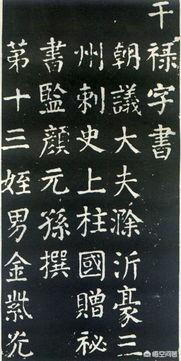 干禄字書
朝議大夫滁沂豪三
州刺史上柱國贈祕
書監顔元孫撰
第十三姪男金紫光
悟空问答